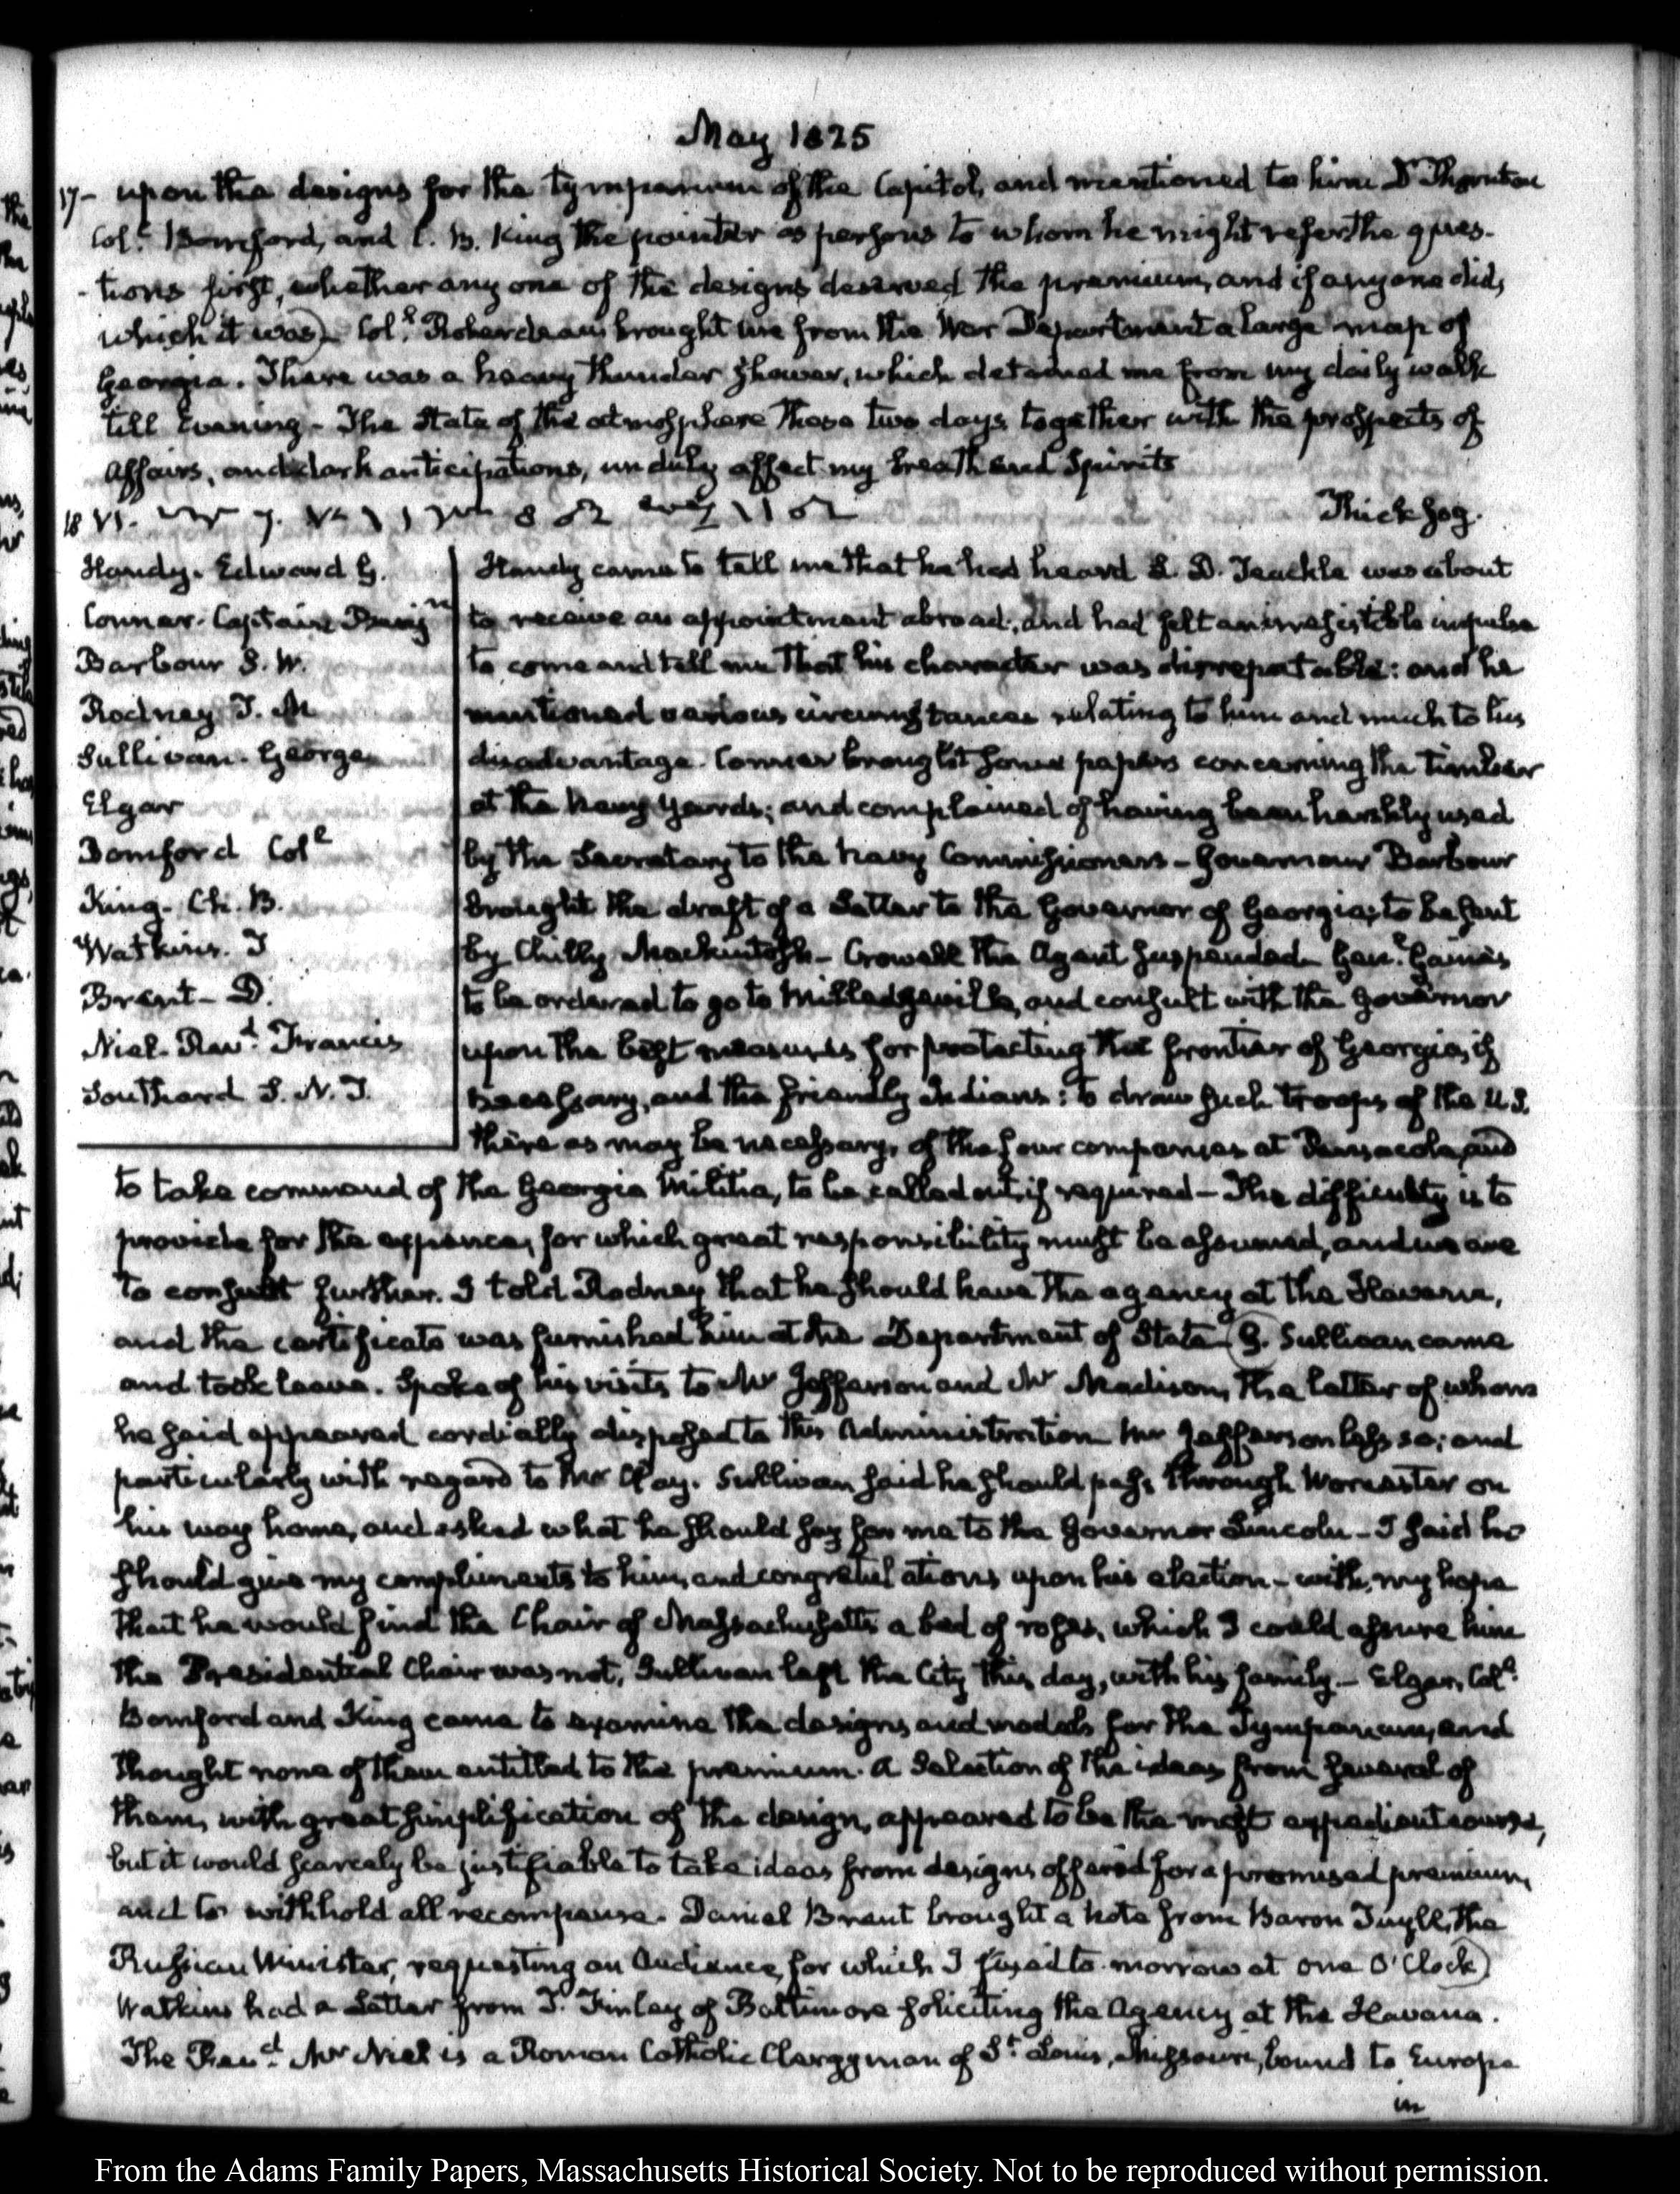 May 1825
17- upon the designs for the Tympanum of the Capitol, and mentioned to him Dr Thornton
Coll. Bomford, and C. B. King the painter as persons to whom he might refer the ques-
-tions first, whether any one of the designs deserved the premium, and if any one did,
which it was) Coll. Roberdeau brought me from the War Department a large map of
Georgia. There was a heavy thunder shower, which detained me from my daily walk
till Evening - The State of the atmosphere these two days together with the prospects of
Affairs, and dark anticipations, unduly affect my breath and Spirits
18 VI.
Thick fog.
Handy. Edward G.
Conner. Captain Benjn
Barbour S. W.
Rodney T. M
Sullivan. George
Elgar
Bomford Coll
King. Ch. B.
Watkins. T
Brent - D.
Niel. Revd. Francis
Southard S. N. J.
Handy came to tell me that he had heard L. D. Teackle was about
to receive an appointment abroad; and had felt an irresistible impulse
to come and tell me that his character was disreputable: and he
mentioned various circumstances relating to him and much to his
disadvantage. Conner brought some papers concerning the timber
at the Navy Yards; and complained of having been harshly used
by the Secretary to the Navy Commissioners - Governour Barbour
brought the draft of a Letter to the Governor of Georgia; to be sent
by Chilly Mackintosh - Crowell the Agent suspended - Genl. Gaines
to be ordered to go to Milledgeville, and consult with the Governor
upon the best measures for protecting the frontier of Georgia, if
necessary, and the friendly Indians: to draw such troops of the U.S.
there as may be necessary, of the four companies at Pensacola, and
to take command of the Georgia Militia, to be called out, if required - The difficulty is to
provide for the expence, for which great responsibility must be assumed, and we are
to consult further. I told Rodney that he should have the agency at the Havana,
and the certificate was furnished him at the Department of State - G. Sullivan came
and took leave. Spoke of his visits to Mr Jefferson and Mr Madison, the latter of whom
he said appeared cordially disposed to this Administration Mr Jefferson less so; and
particularly with regard to Mr Clay. Sullivan said he should pass through Worcester on
his way home, and asked what he should say for me to the Governor Lincoln - I said he
should give my compliments to him, and congratulations upon his election - with my hope
that he would find the Chair of Massachusetts a bed of roses, which I could assure him
the Presidential Chair was not. Sullivan left the City this day, with his family - Elgar, Coll.
Bomford and King came to examine the designs and models for the Tympanum, and
thought none of them entitled to the premium. A Selection of the ideas from several of
them, with great simplification of the design, appeared to be the most expedient course,
but it would scarcely be justifiable to take ideas from designs offered for a promised premium,
and to withhold all recompense. Daniel Brent brought a Note from Baron Tuyll, the
Russian Minister, requesting an Audience, for which I fixed to-morrow at one O'Clock)
Watkins had a Letter from T. Finlay of Baltimore soliciting the Agency at the Havana.
The Revd. Mr Niel is a Roman Catholic Clergyman of St. Louis, Missouri, bound to Europe
in
From the Adams Family Papers, Massachusetts Historical Society. Not to be reproduced without permission.